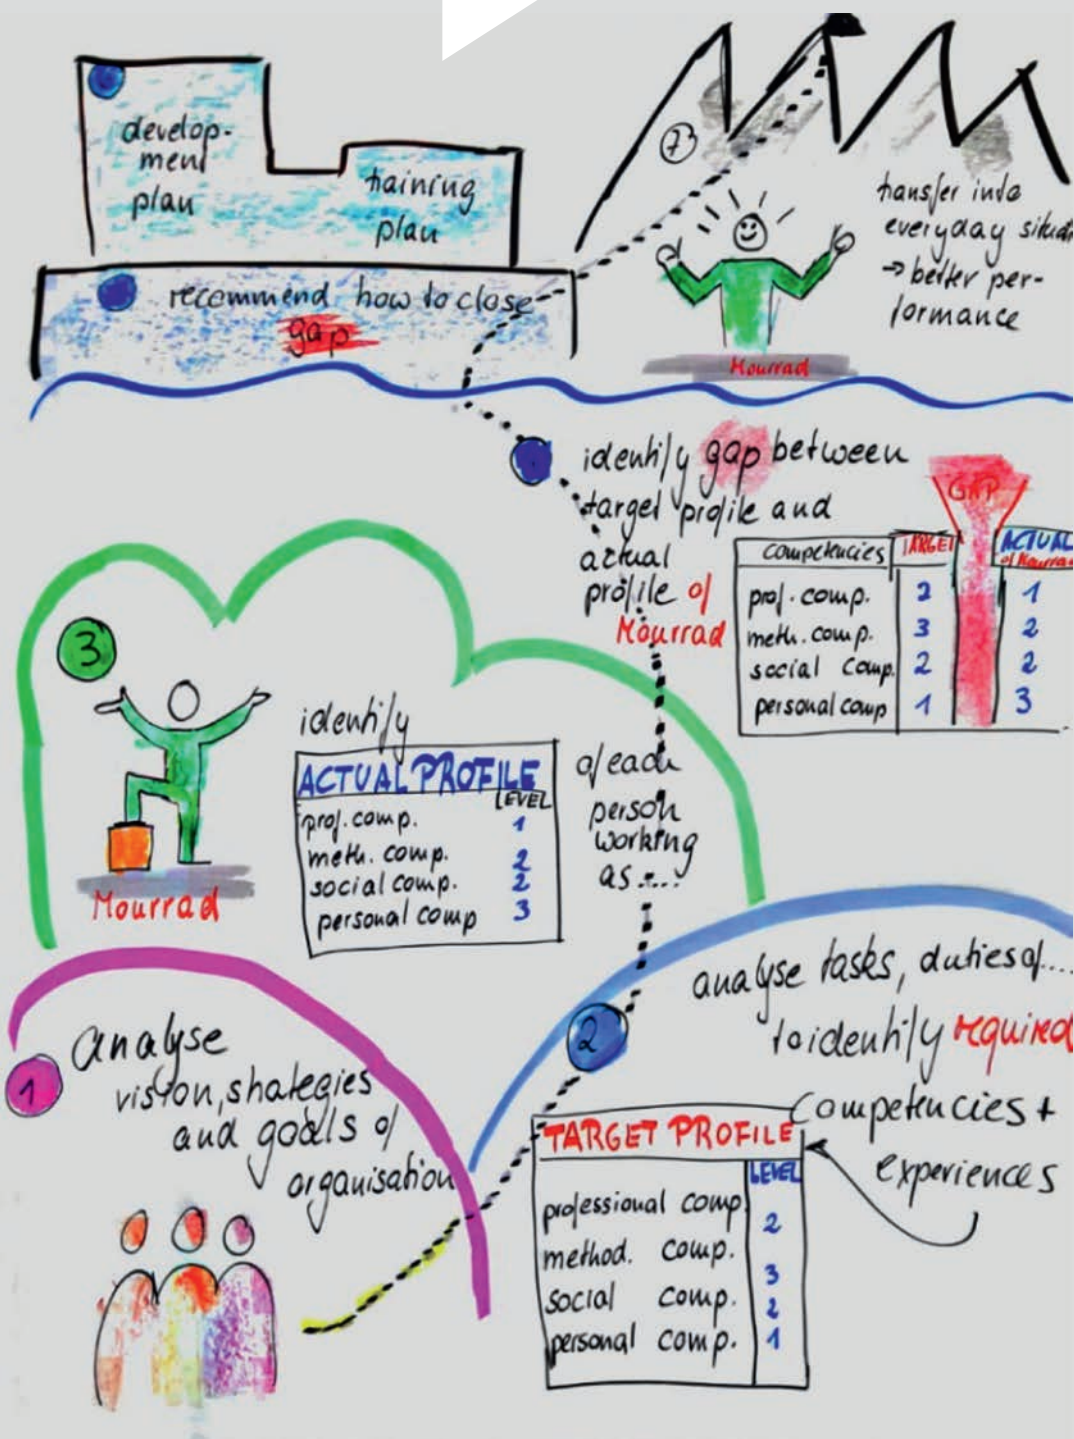 develop-
ment
plan
training
plan
recommend how to close
gap
7
transfer into
everyday
→ better per-
formance
Mourrad
identify gap between
target profile and
actual
profile of
Mourrad
GAP
competencies TARGET ACTUAL
of Mourrad
prof. comp. 2 1
meth. comp. 3 2
social comp. 2 2
personal comp 1 3
3
Mourrad
identify
ACTUAL PROFILE
LEVEL
prof. comp. 1
meth. comp. 2
social comp. 2
personal comp 3
of each
person
working
as ....
1
analyse
vision, strategies
and goals of
organisation
2
analyse tasks, duties of ....
to identify required
competencies +
experiences
TARGET PROFILE
LEVEL
professional comp. 2
method. comp. 3
social comp. 2
personal comp. 1